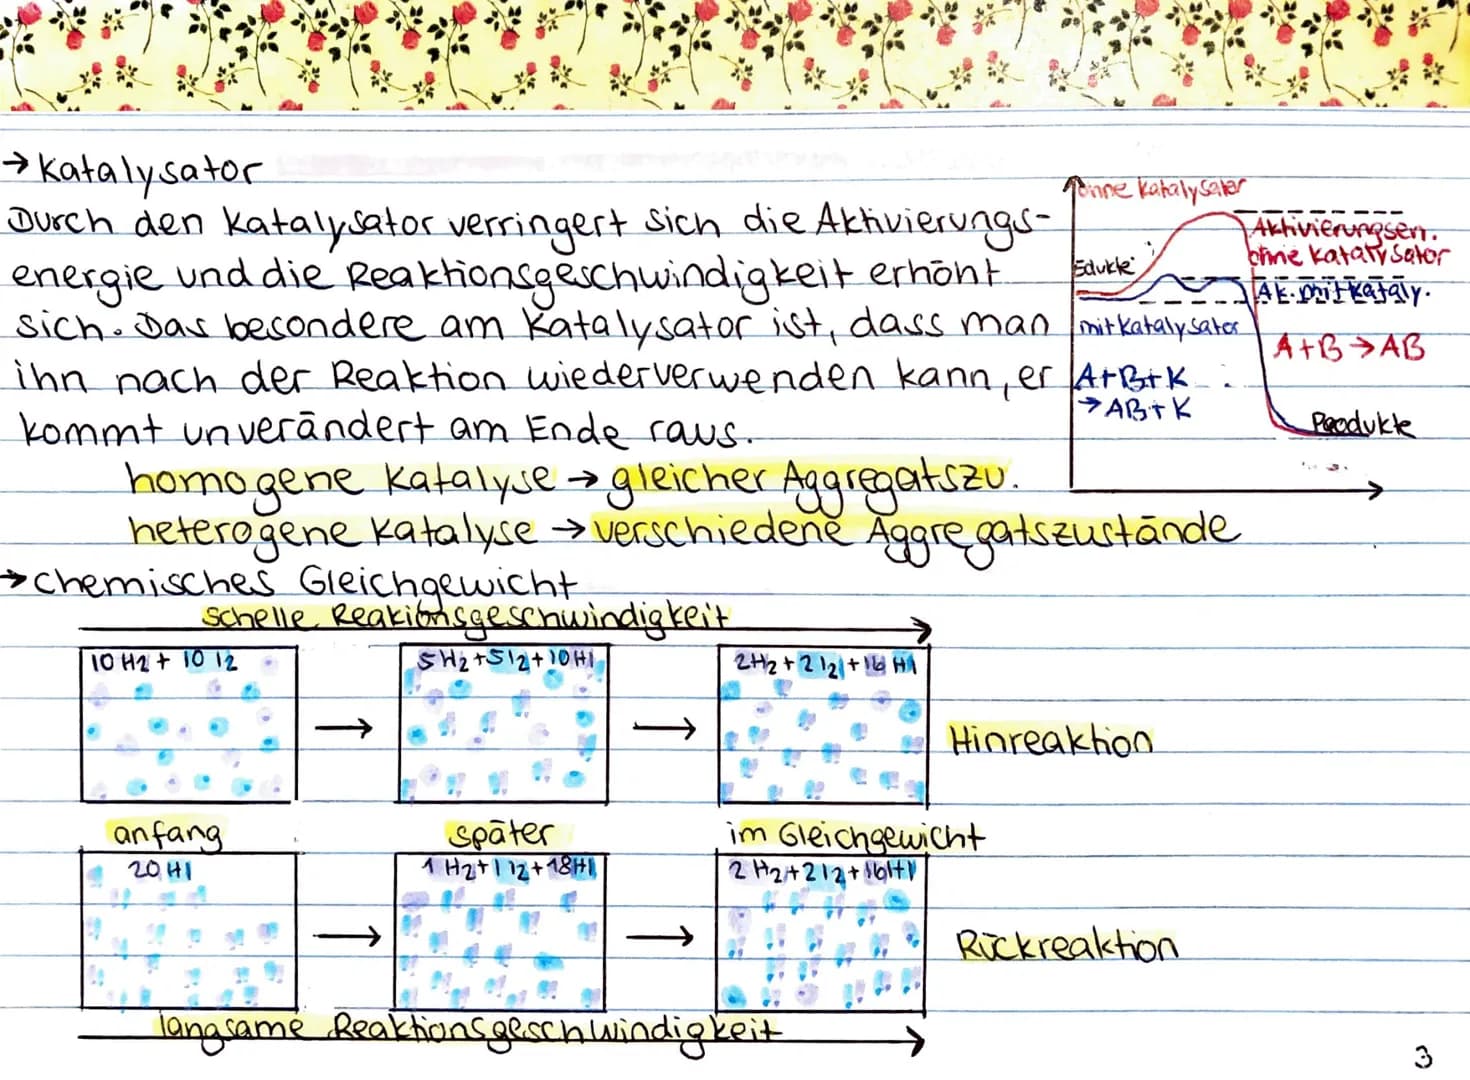 → Katalysator
Durch den Katalysator verringert sich die Aktivierungs-
energie und die Reaktionsgeschwindigkeit erhöht
sich. Das besondere am Katalysator ist, dass man
ihn nach der Reaktion wiederverwenden kann, er
kommt unverändert am Ende raus.
homogene Katalyse → gleicher Aggregatszu.
heterogene Katalyse → verschiedene Aggregatszustände
ohne Katalysator
Aktivierungsen.
ohne Katalysator
Edukte
Ak. mit Kataly.
mit Katalysator
A+B → AB
A+B+K
→ AB+K
Produkte
→ chemisches Gleichgewicht
schelle Reakionsgeschwindigkeit
10 H2 + 10 I2
5 H2 + 5 I2 + 10 HI
2 H2 + 2 I2 + 16 HI
Hinreaktion
anfang
später
im Gleichgewicht
20 HI
1 H2 + 1 I2 + 18 HI
2 H2 + 2 I2 + 16 HI
Rückreaktion
langsame Reaktionsgeschwindigkeit
3